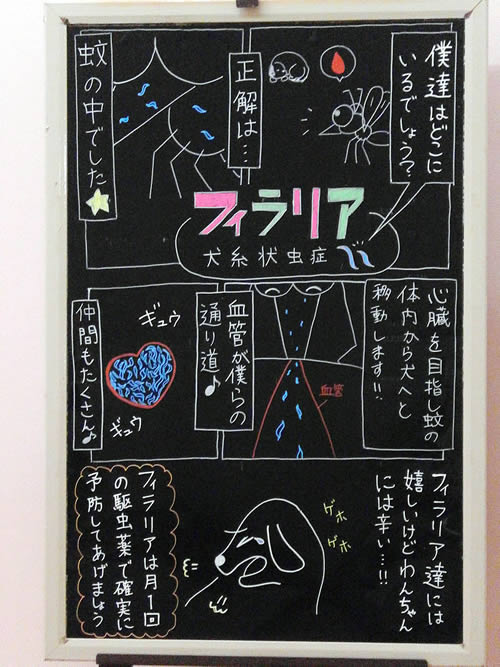 僕達はどこに
いるでしょう?
正解は…
蚊の中でした
フィラリア
犬糸状虫症
心臓を目指し蚊の
体内から犬へと
移動します!!
血管
血管が僕らの
通り道♪
ギュウ
ギュウ
仲間もたくさん♪
フィラリア達には
嬉しいけどわんちゃん
には辛い…!!
ゲホ
ゲホ
フィラリアは月1回
の駆虫薬で確実に
予防してあげましょう